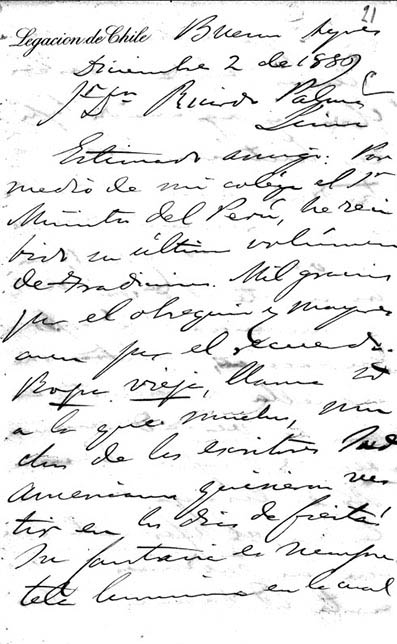 21
Legacion de Chile Buenos Ayres
Diciembre 2 de 1889
Sr Dn Ricardo Palma
Lima
Estimado amigo: Por
medio de mi coléga el Sr
Ministro del Perú, he reci
bido su último volúmen
de Tradiciones. Mil gracias
por el obsequio y mayores
aun por el recuerdo.
Ropa vieja, llama Ud
a lo que muchos, mu
chos de los escritores Sud
Americanos quisieran ves
tir en los dias de fiesta!
Su fantasia es siempre
tela luminosa en la cual